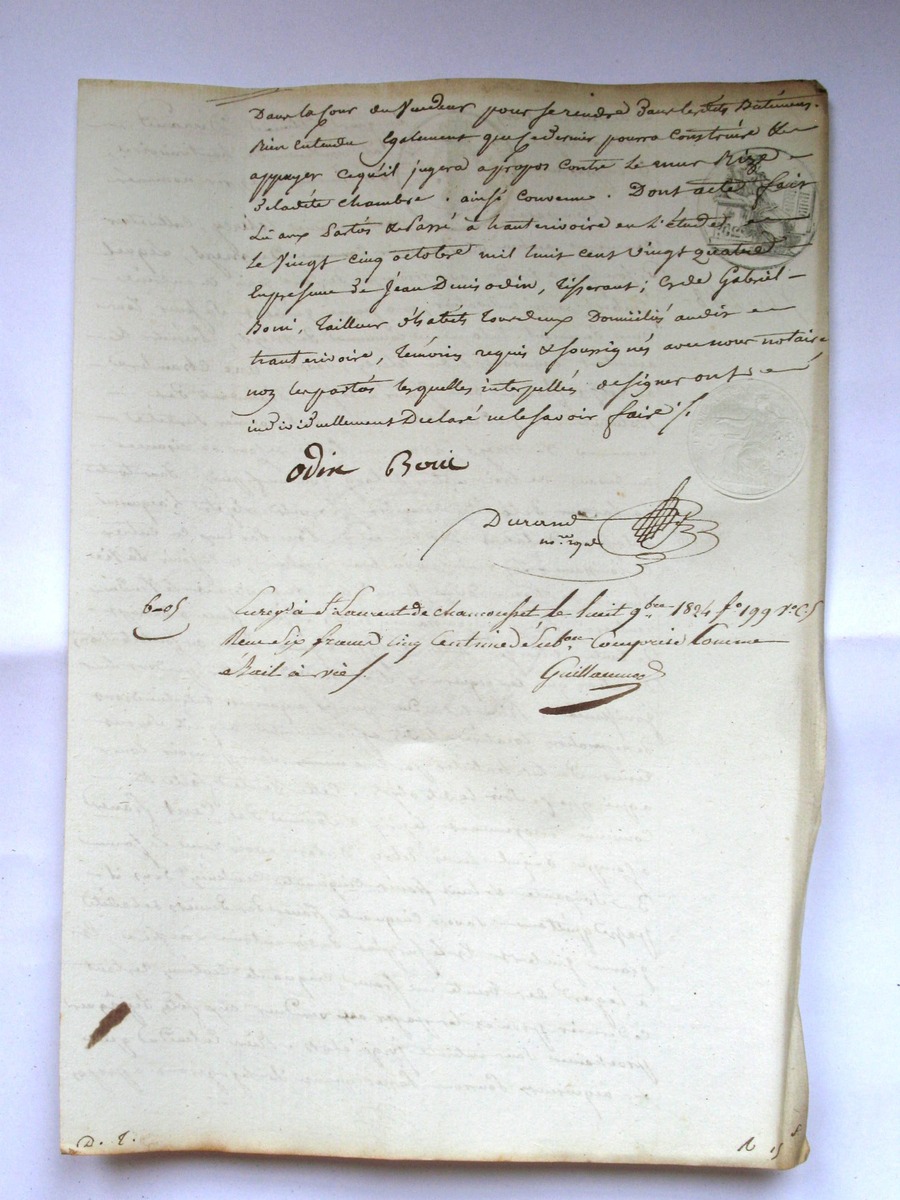 Dans la Cour du Vendeur pour se rendre dans lesdits Bâtimens.
Bien Entendu Egalement que ce dernier pourra Construire &
appuyer ce qu'il jugera apropos contre Le mur Bize
de ladite chambre. ainsi convenu. Dont acte fait
Lû aux Parties & Passé à hauterivoire en l'étude
Le Vingt cinq octobre mil huit cent vingt quatre
En presence de Jean Denis odin, Tisserant; & de Gabriel
Boni, Tailleur d'habits tous deux Domiciliés audit
hauterivoire, Témoins requis & soussignés avec nous notaire
non les parties lesquelles interpellées de signer ont
individuellement Declaré ne le savoir faire /.
odin Boni
Durand
nre. royal
6-05
Enregé à St Laurent de chamousset le huit 9bre 1824 fo 199 vo C. 5
Reçu Six francs Cinq Centimes Subon Comprise Comme
Bail à vie
Guillaumod
D. T.